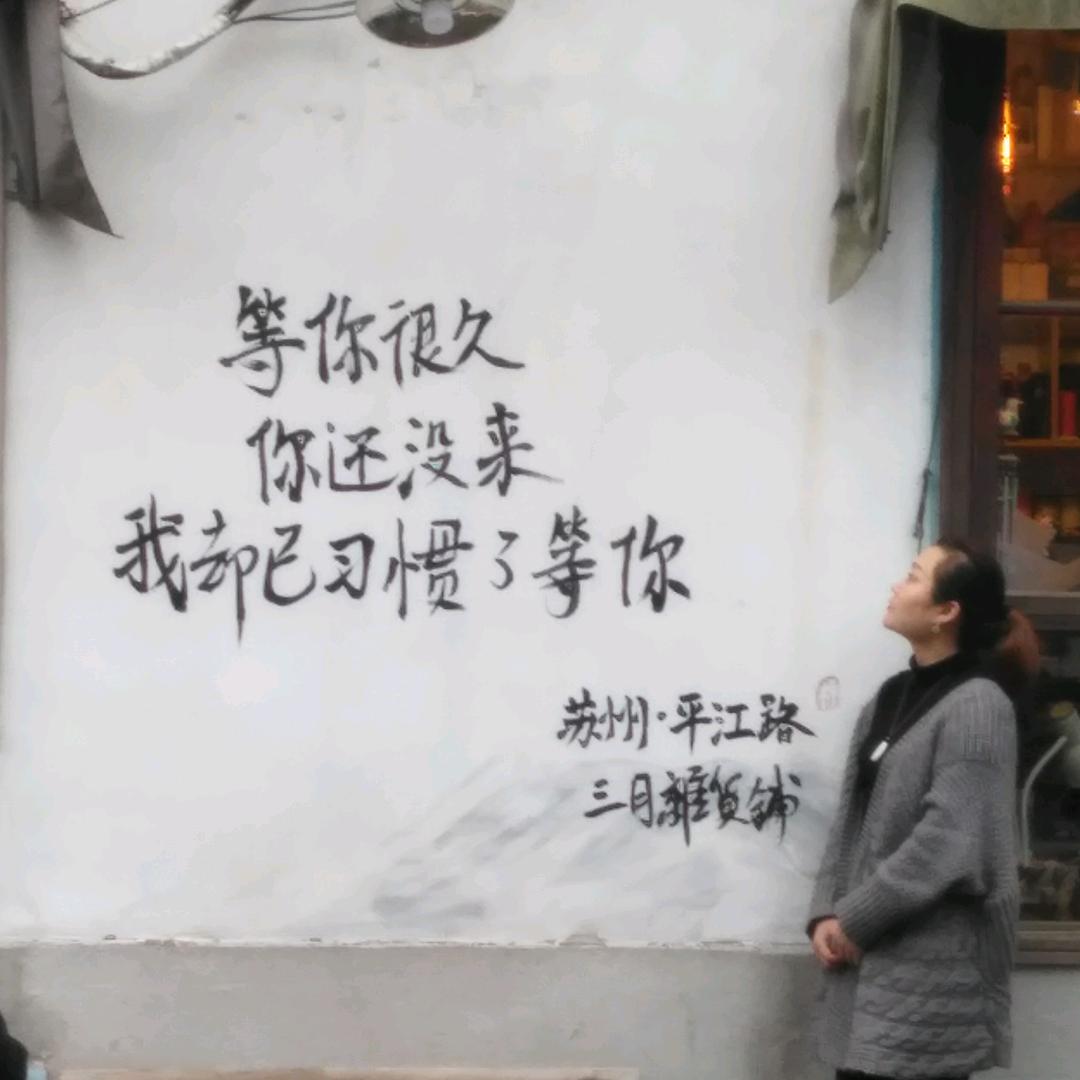 等你很久
你还没来
我却已习惯了等你
苏州·平江路
三月雜货铺